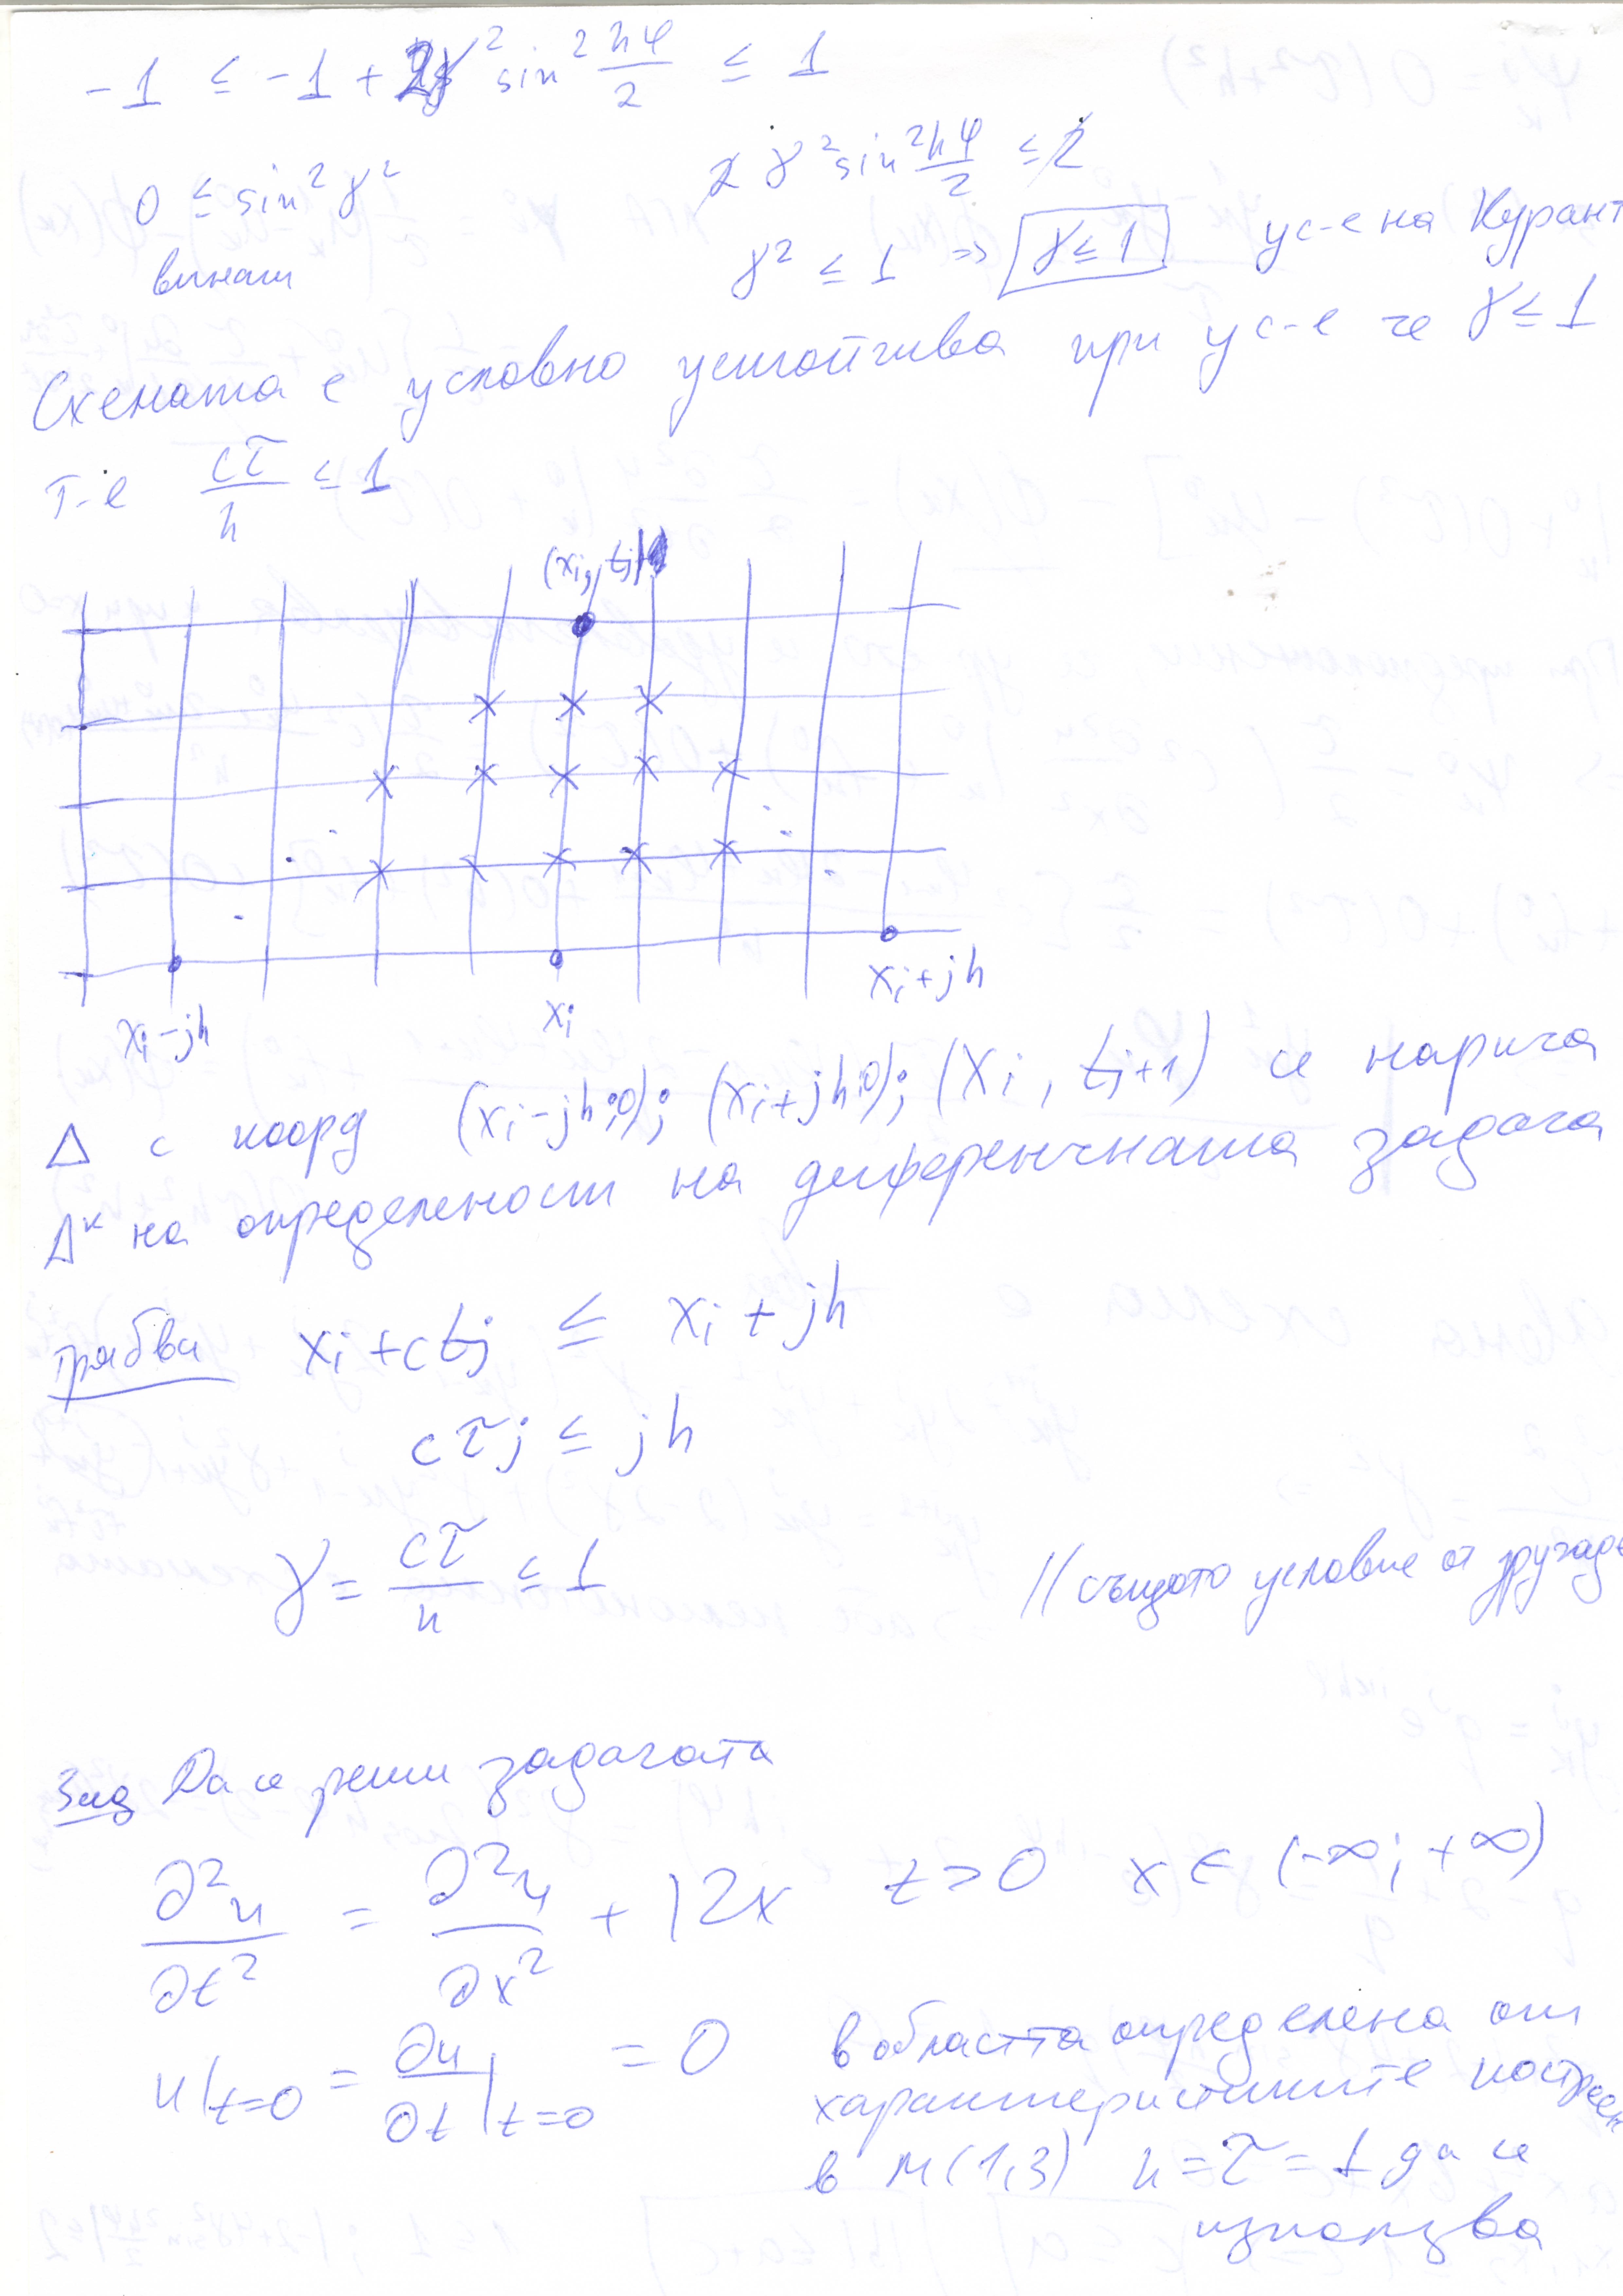 -1 ≤ -1 + 2γ² sin² hφ/2 ≤ 1
0 ≤ sin² γ²
2 γ² sin² hφ/2 ≤ 2
винаги
γ² ≤ 1 => γ ≤ 1 ус-е на Курант
Схемата е условно устойчива при ус-е че γ ≤ 1
т-е cτ/h ≤ 1
(xi, tj+1)
xi-jh
xi
xi+jh
Δ с коорд (xi-jh;0); (xi+jh;0); (xi, tj+1) се нарича
Δк на определеност на диференчната задача
трябва xi + ctj ≤ xi + jh
cτj ≤ jh
γ = cτ/h ≤ 1
// същото условие от другаде
Зад Да се реши задачата
∂²u/∂t² = ∂²u/∂x² + 12x t>0 x ∈ (-∞; +∞)
u|t=0 = ∂u/∂t|t=0 = 0
в областта определена от
характеристиките построен
в М(1,3) h = τ = 1 да се
използва